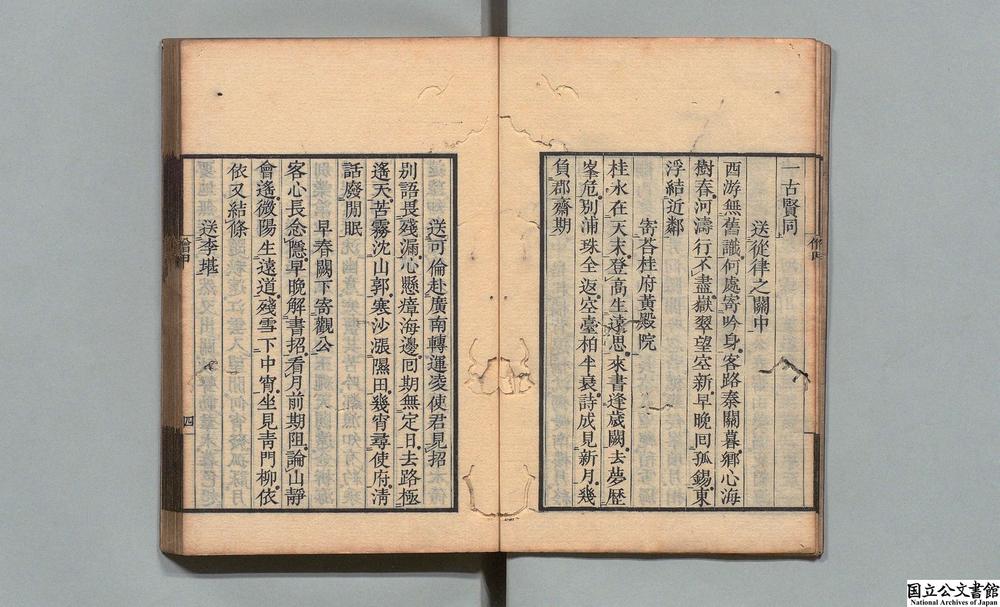 一古賢同
送從律之關中
西游無舊識何處寄吟身客路秦關暮鄉心海
樹春河濤行不盡嶽翠望空新早晚回孤錫東
浮結近鄰
寄荅桂府黃殿院
桂水在天末登高生遠思來書逢歲闕去夢歷
峯危別浦珠全返空臺柏半衰詩成見新月幾
負郡齋期
送可倫赴廣南轉運凌使君見招
別語畏殘漏心懸瘴海邊回期無定日去路極
遙天苦霧沈山郭寒沙漲隰田幾宵尋使府清
話廢閒眠
早春闕下寄觀公
客心長念隱早晚解書招看月前期阻論山靜
會遙微陽生遠道殘雪下中宵坐見青門柳依
依又結條
送李堪
四
国立公文書館
National Archives of Japan